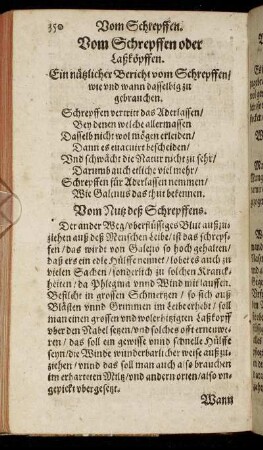 350
Vom Schrepffen.
Vom Schrepffen oder
Laßköpffen.
Ein nützlicher Bericht vom Schrepffen/
wie vnd wann dasselbig zu
gebrauchen.
Schrepffen vertritt das Aderlassen/
Bey denen welche allermassen
Dasselb nicht wol mögen erleiden/
Dann es euacuirt bescheiden/
Vnd schwächt die Natur nicht zu sehr/
Darumb auch etliche viel mehr/
Schrepffen für Aderlassen nemmen/
Wie Galenus das thut bekennen.
Vom Nutz deß Schrepffens.
Der ander Weg/ vberflüssiges Blut außzu-
ziehen auß deß Menschen Leibe/ ist das schrepf-
fen/ das wirdt von Galeno so hoch gehalten/
daß ers ein edle Hülffe nennet/ lobet es auch zu
vielen Sachen/ sonderlich zu solchen Kranck-
heiten/ da Phlegma vnnd Wind mit lauffen.
Befilcht in grossen Schmertzen/ so sich auß
Blästen vnnd Grimmen im Leibe erhebt/ soll
man einen grossen vnd wolerhitzigten Laßkopff
vber den Nabel setzen/ vnd solches offt erneuwe-
ren/ das soll ein gewisse vnnd schnelle Hülffe
seyn/ die Winde wunderbarlicher weise außzu-
ziehen/ vnnd das soll man auch also brauchen
im erharteten Miltz/ vnd andern orten/ also vn-
gepickt vbergesetzt.
Wann